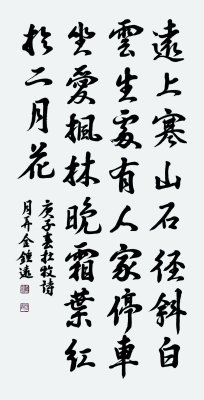 遠上寒山石徑斜白
雲生處有人家停車
坐愛楓林晚霜葉紅
於二月花
庚子春杜牧詩
月 金鍾遠